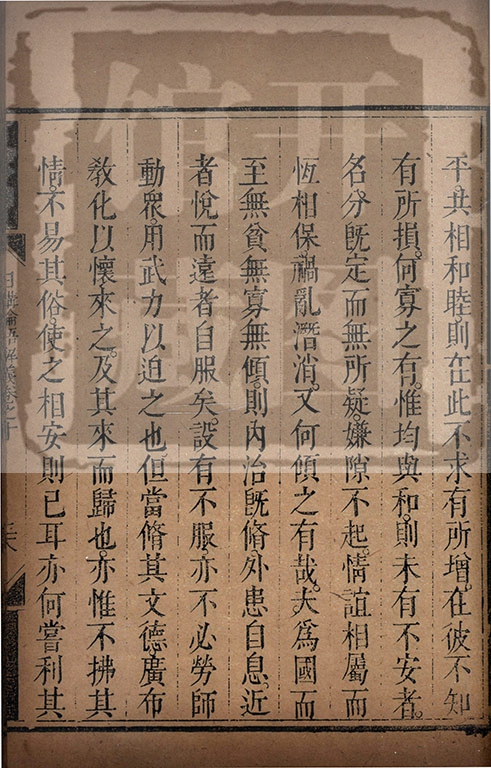 平共相和睦則在此不求有所增在彼不知
有所損何寡之有惟均與和則未有不安者
名分既定而無所疑嫌隙不起情誼相屬而
恆相保禍亂潛消又何傾之有哉夫爲國而
至無貧無寡無傾則內治既脩外患自息近
者悅而遠者自服矣設有不服亦不必勞師
動衆用武力以迫之也但當脩其文德廣布
敎化以懷來之及其來而歸也亦惟不拂其
情不易其俗使之相安則已耳亦何嘗利其
日講論語解義卷之十
开图
馆藏